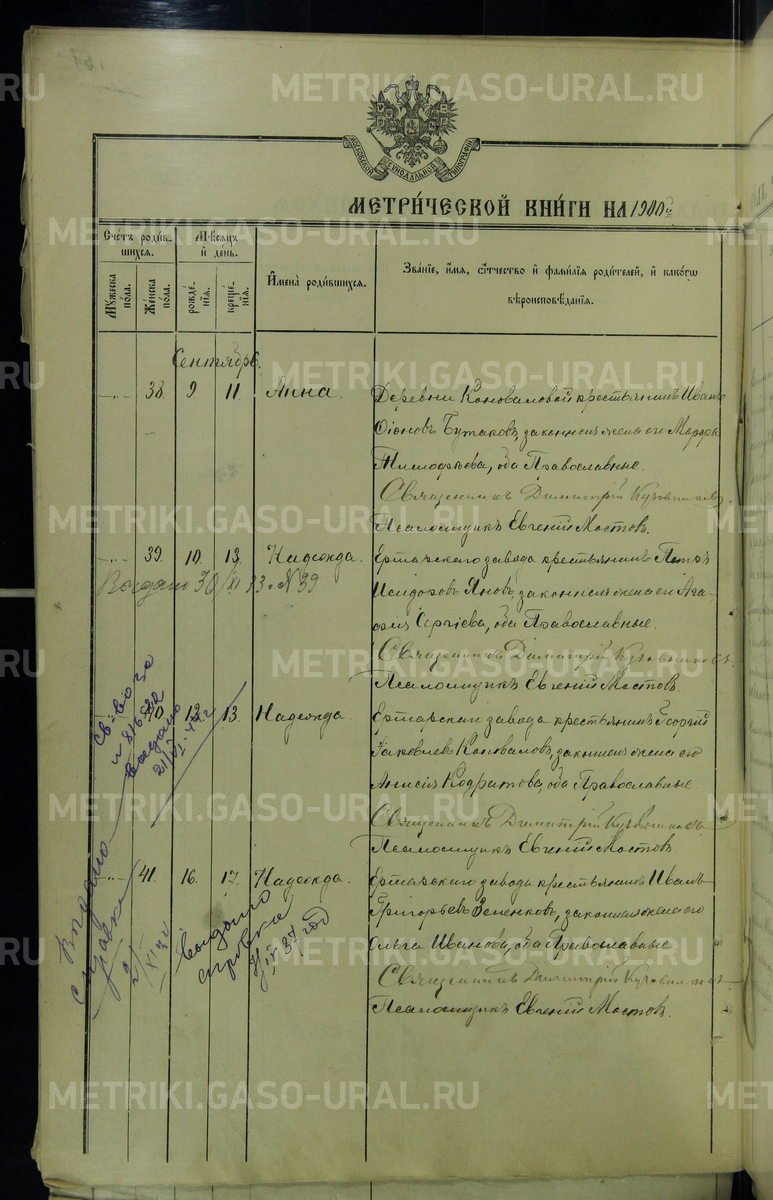 METRIKI.GASO-URAL.RU
МОСКОВСКОЙ СѴНОДАЛЬНОЙ ТИПОГРАФІИ
МЕТРИ́ЧЕСКОЙ КНИ́ГИ НА 1900 г.
Сче́тъ роди́вшихся.
Мꙋ́жеска по́ла.
Же́нска по́ла.
Мѣ́сяцъ и҆ де́нь.
рожде́нїя.
креще́нїя.
И҆мена̀ роди́вшихся.
Зва́нїе, и҆́мя, ѻ҆́тчество и҆ фами́лїя роди́телей, и҆ како́гѡ вѣроисповѣ́данїя.
Сентябрь.
—„— 38. 9. 11. Анна.
Деревни Коноваловой крестьянинъ Иванъ
Бутаковъ, законная жена его
Тимофѣева, оба Православные.
Священникъ Димитрій
Псаломщикъ Евгеній Мостовъ.
—„— 39. 10. 13. Надежда.
Ертарскаго завода крестьянинъ Петръ
Исидоровъ Яновъ, законная жена его Ага-
фія Сергіева, оба Православные.
Священникъ Димитрій
Псаломщикъ Евгеній Мостовъ.
Выдано 30/XI 33 г. № 39
40. 12. 13. Надежда.
Ертарскаго завода крестьянинъ Георгій
Іаковлевъ Коноваловъ, законная жена его
Анисія Кодратова, оба Православные.
Священникъ Димитрій
Псаломщикъ Евгеній Мостовъ.
выдано
—„— 41. 16. 17. Надежда.
Ертарскаго завода крестьянинъ Иванъ
Григорьевъ Зеленковъ, законная жена его
Ольга Иванова, оба Православные
Священникъ Димитрій
Псаломщикъ Евгеній Мостовъ.
Выдано
справка
Выдано
справка
37 год